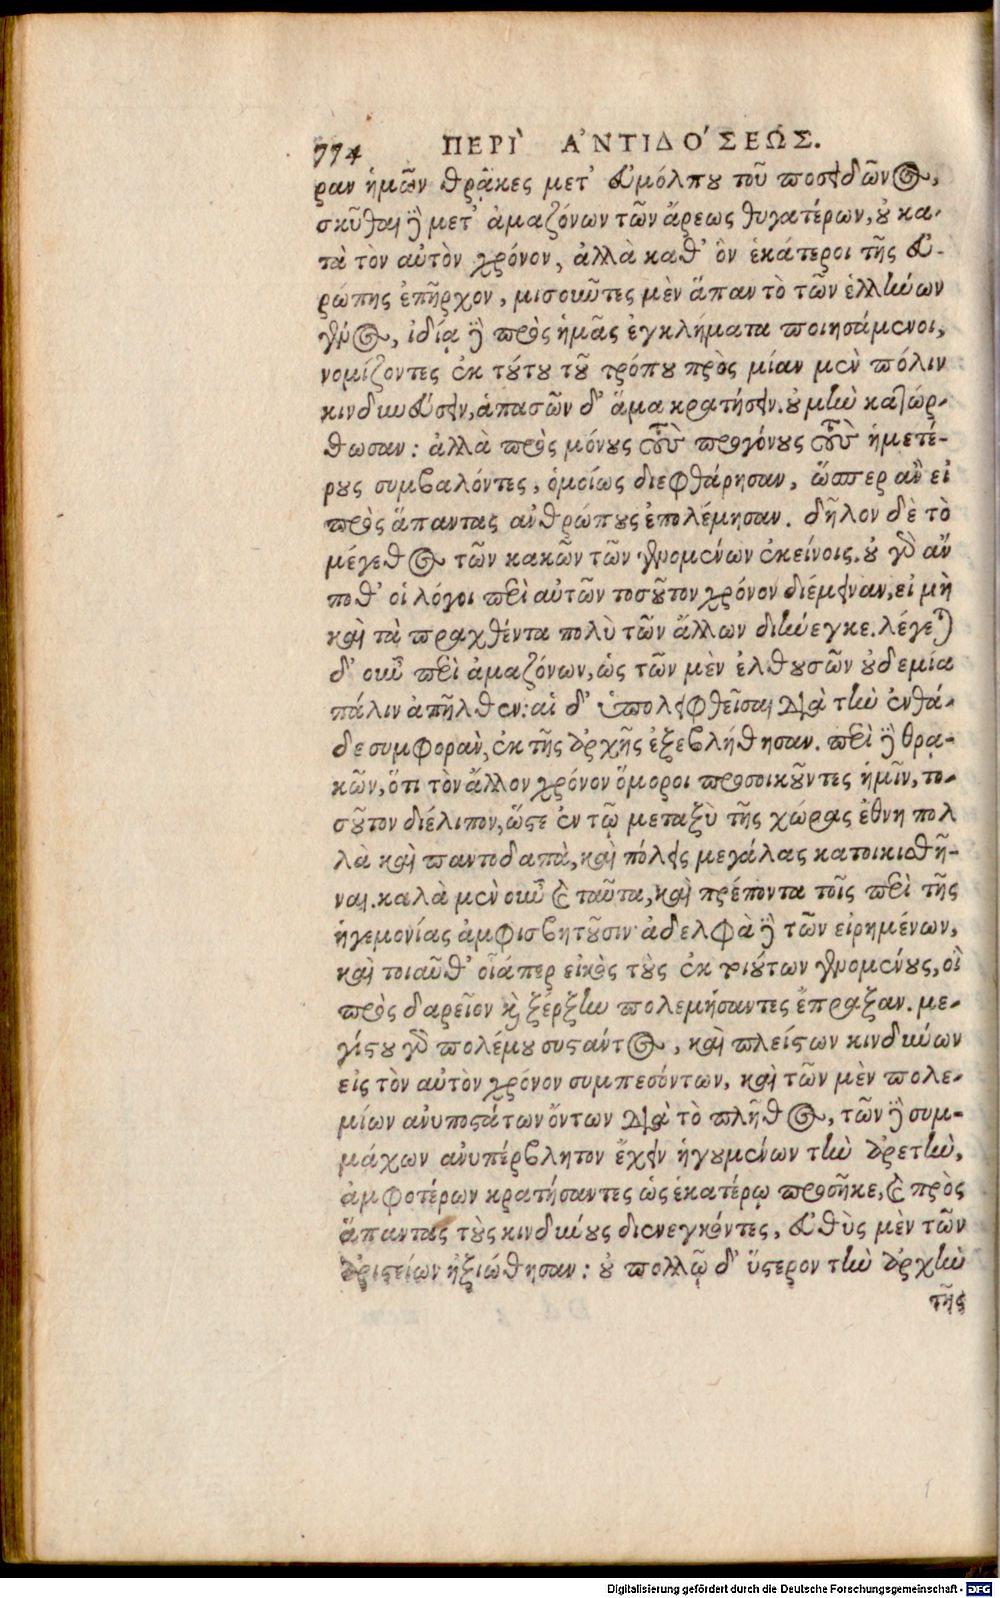 774 ΠΕΡῚ Α᾿ΝΤΙΔΟ´ΣΕΩΣ.
ραν ἡμῶν θρᾷκες μετ᾽ εὐμόλπου τοῦ ποσειδῶνος,
σκῦθαι δὲ μετ᾽ ἀμαζόνων τῶν ἄρεως θυγατέρων, οὐ κα-
τὰ τὸν αὐτὸν χρόνον, ἀλλὰ καθ᾽ ὃν ἑκάτεροι τῆς εὐ-
ρώπης ἐπῆρχον, μισοῦντες μὲν ἅπαν τὸ τῶν ἑλλήνων
γένος, ἰδίᾳ δὲ πρὸς ἡμᾶς ἐγκλήματα ποιησάμενοι,
νομίζοντες ἐκ τούτου τοῦ τρόπου πρὸς μίαν μὲν πόλιν
κινδυνεύσειν, ἁπασῶν δ᾽ ἅμα κρατήσειν. οὐ μὴν κατώρ-
θωσαν: ἀλλὰ πρὸς μόνους τοὺς προγόνους τοὺς ἡμετέ-
ρους συμβαλόντες, ὁμοίως διεφθάρησαν, ὥσπερ ἂν εἰ
πρὸς ἅπαντας ἀνθρώπους ἐπολέμησαν. δῆλον δὲ τὸ
μέγεθος τῶν κακῶν τῶν γενομένων ἐκείνοις. οὐ γὰρ ἄν
ποθ᾽ οἱ λόγοι περὶ αὐτῶν τοσοῦτον χρόνον διέμειναν, εἰ μὴ
καὶ τὰ πραχθέντα πολὺ τῶν ἄλλων διήνεγκε. λέγεται
δ᾽ οὖν περὶ ἀμαζόνων, ὡς τῶν μὲν ἐλθουσῶν οὐδεμία
πάλιν ἀπῆλθεν: αἱ δ᾽ ὑπολειφθεῖσαι διὰ τὴν ἐνθά-
δε συμφορὰν, ἐκ τῆς ἀρχῆς ἐξεβλήθησαν. περὶ δὲ θρα-
κῶν, ὅτι τὸν ἄλλον χρόνον ὅμοροι προσοικοῦντες ἡμῖν, το-
σοῦτον διέλιπον, ὥστε ἐν τῷ μεταξὺ τῆς χώρας ἔθνη πολ
λὰ καὶ παντοδαπὰ, καὶ πόλεις μεγάλας κατοικισθῆ-
ναι. καλὰ μὲν οὖν καὶ ταῦτα, καὶ πρέποντα τοῖς περὶ τῆς
ἡγεμονίας ἀμφισβητοῦσιν· ἀδελφὰ δὲ τῶν εἰρημένων,
καὶ τοιαῦθ᾽ οἷάπερ εἰκὸς τοὺς ἐκ τοιούτων γενομένους, οἳ
πρὸς δαρεῖον καὶ ξέρξην πολεμήσαντες ἔπραξαν. με-
γίστου γὰρ πολέμου συστάντος, καὶ πλείστων κινδύνων
εἰς τὸν αὐτὸν χρόνον συμπεσόντων, καὶ τῶν μὲν πολε-
μίων ἀνυποστάτων ὄντων διὰ τὸ πλῆθος, τῶν δὲ συμ-
μάχων ἀνυπέρβλητον ἔχειν ἡγουμένων τὴν ἀρετὴν,
ἀμφοτέρων κρατήσαντες ὡς ἑκατέρῳ προσῆκε, καὶ πρὸς
ἅπαντας τοὺς κινδύνους διενεγκόντες, εὐθὺς μὲν τῶν
ἀριστείων ἠξιώθησαν: οὐ πολλῷ δ᾽ ὕστερον τὴν ἀρχὴν
τῆς
Digitalisierung gefördert durch die Deutsche Forschungsgemeinschaft - DFG